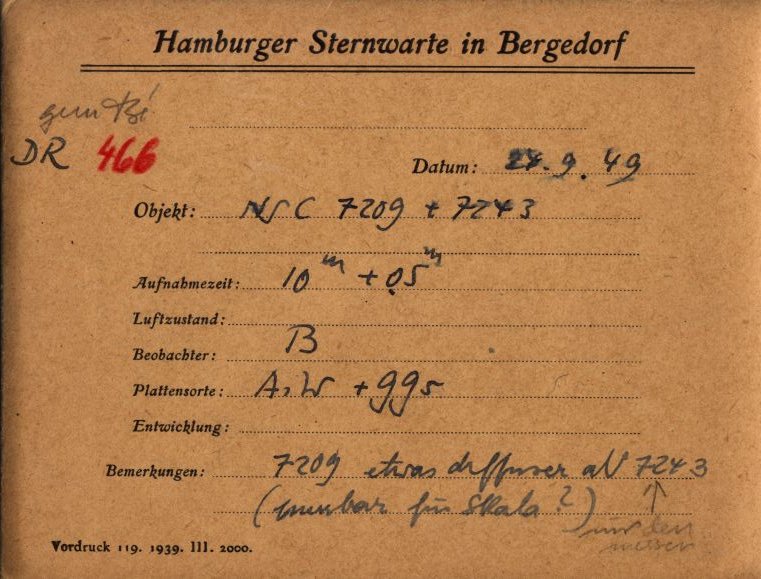 Hamburger Sternwarte in Bergedorf
DR 466
Datum: 24. 9. 49
Objekt: NGC 7209 + 7243
Aufnahmezeit: 10m + 0.5m
Luftzustand:
Beobachter: B
Plattensorte: A,W + gg5
Entwicklung:
Bemerkungen: 7209 etwas diffuser als 7243
für Skala?)
nur den
messen
Vordruck 119. 1939. III. 2000.